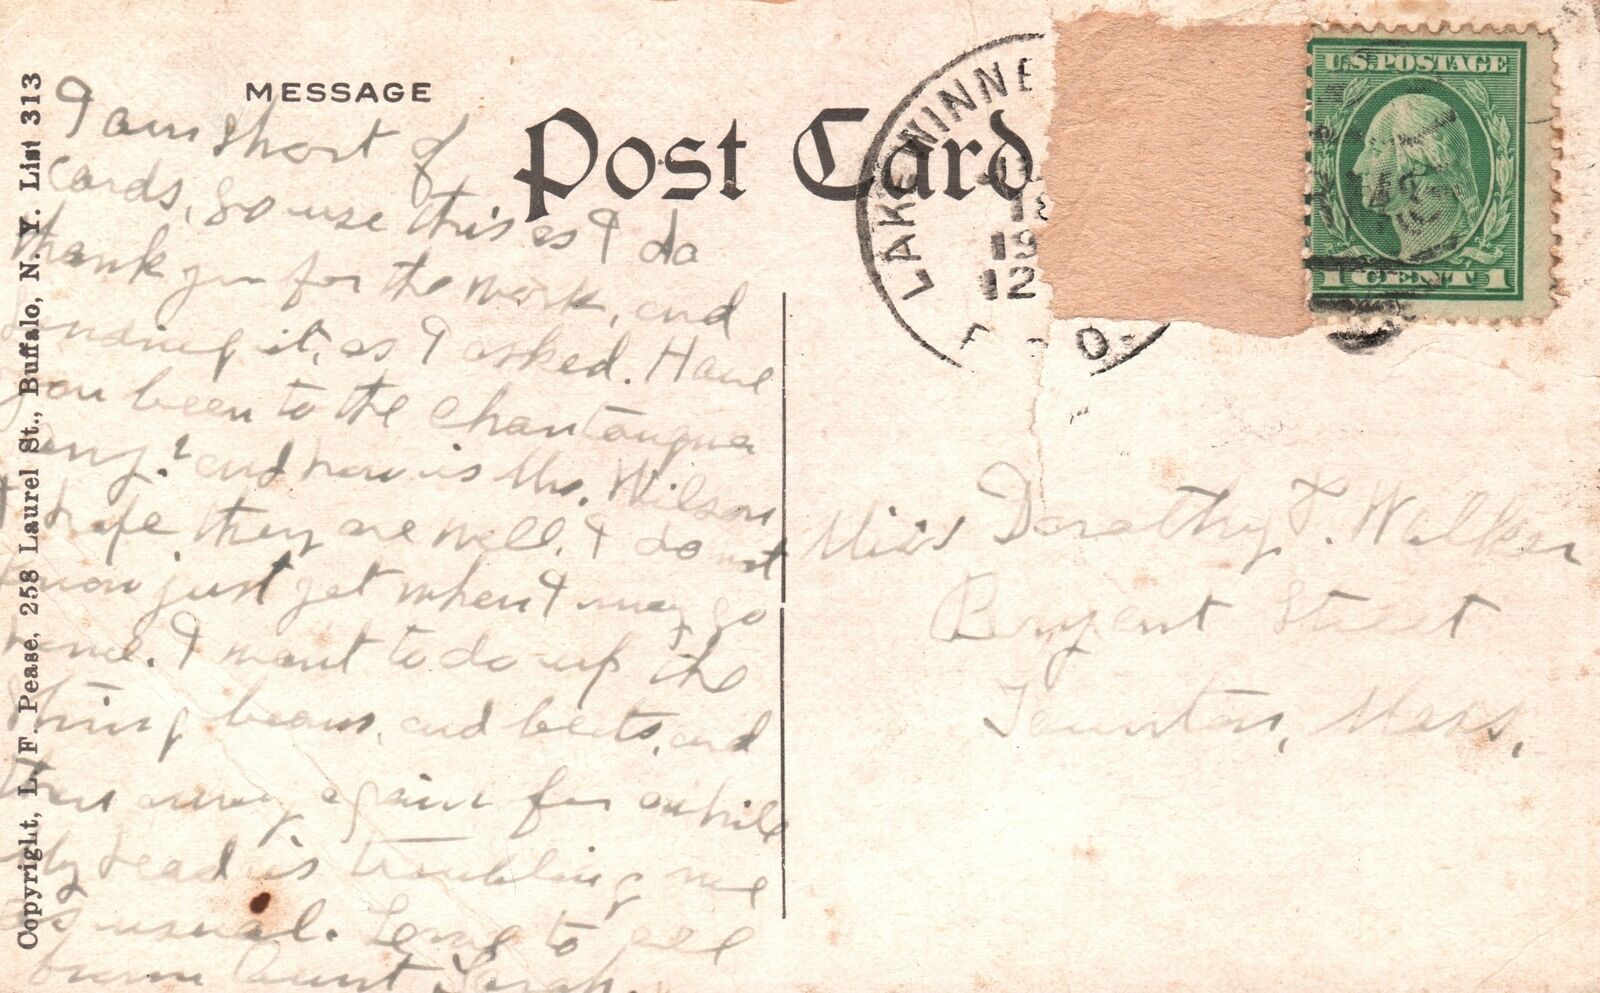 MESSAGE
Post Card
I am short of
cards, so use this as I do
thank you for the work, and
sending it, as I asked. Have
you been to the Chautauqua
any? and how is Mrs. Wilson
I hope they are well. I do not
know just yet when I may go
home. I want to do up the
string beans, and beets, and
then away again for awhile
My head is troubling me
as usual. Love to all
from Aunt Sarah.
Copyright, L. F. Pease, 258 Laurel St., Buffalo, N. Y. List 313
LAKE WINNE
12
U.S. POSTAGE
1 CENT 1
Miss Dorothy F. Walker
Bryent Street
Taunton, Mass.